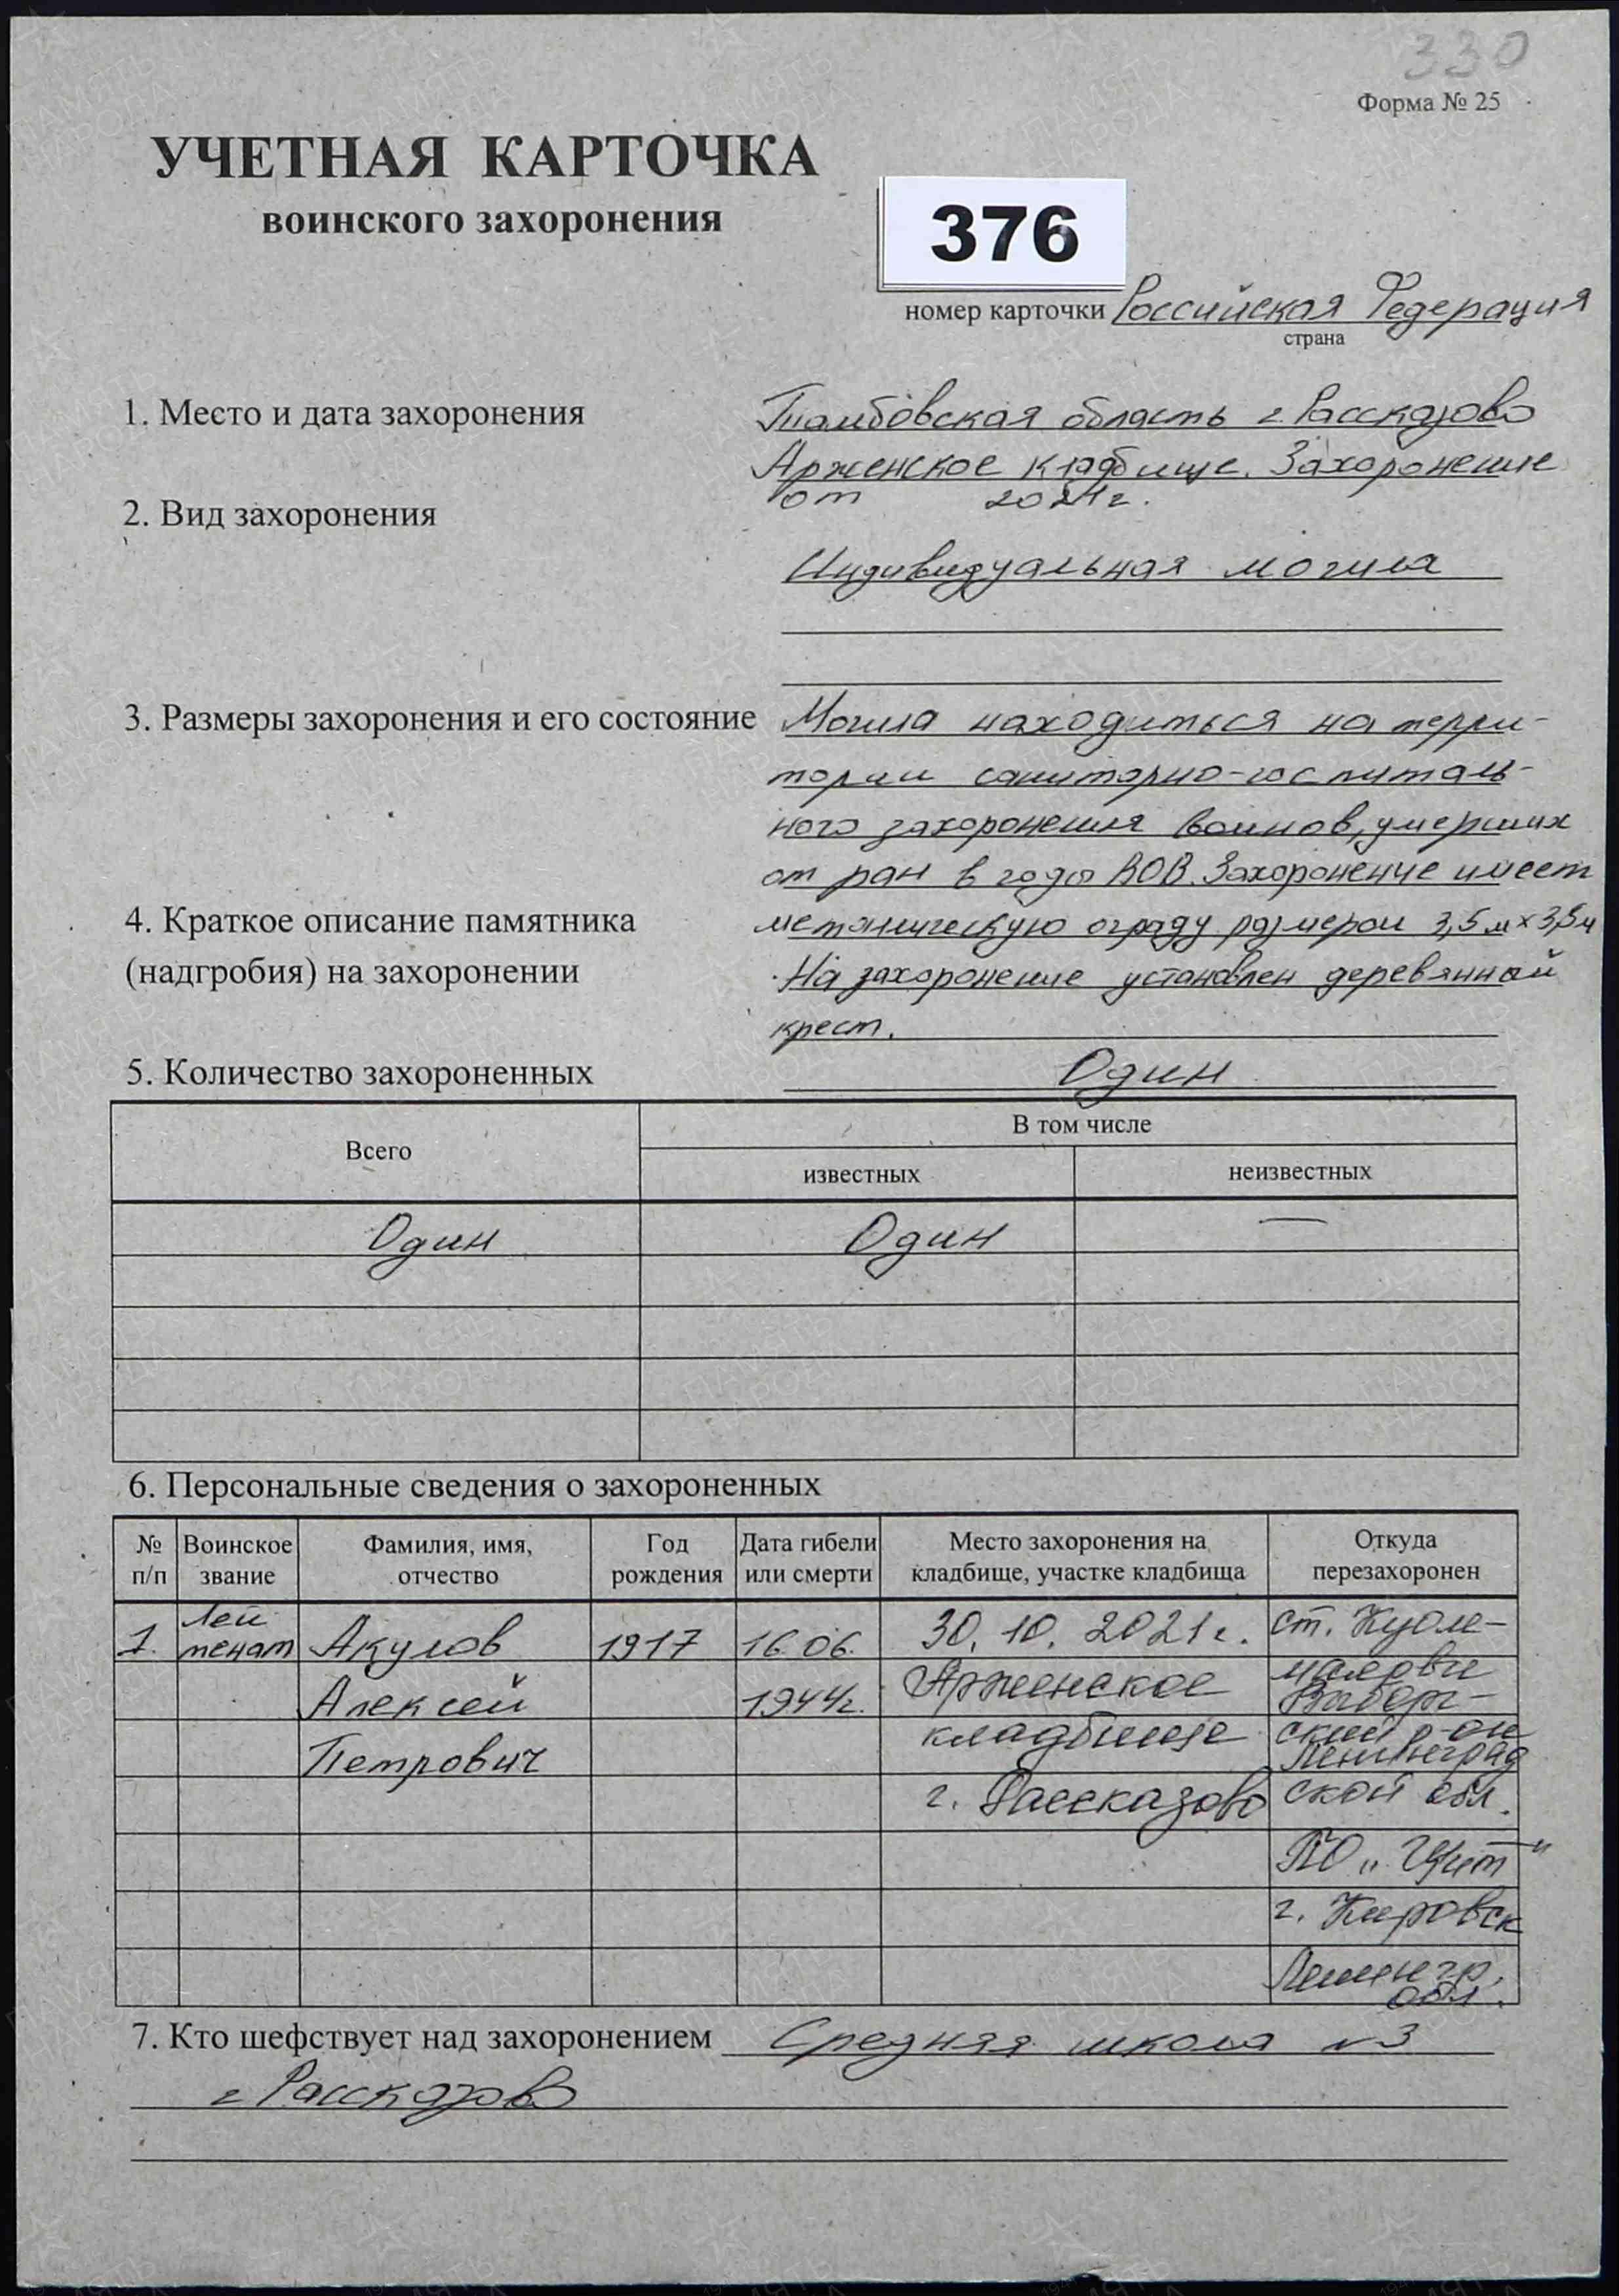 330
Форма № 25
УЧЕТНАЯ КАРТОЧКА
воинского захоронения
376
номер карточки Российская Федерация
страна
1. Место и дата захоронения Тамбовская область г. Рассказово
Арженское кладбище. Захоронение
от 2021 г.
2. Вид захоронения
Индивидуальная могила
3. Размеры захоронения и его состояние Могила находиться на терри-
тории санитарно-госпиталь-
ного захоронения воинов, умерших
от ран в годы ВОВ. Захоронение имеет
4. Краткое описание памятника металическую ограду размером 3,5 м х 3,5 м
(надгробия) на захоронении На захоронение установлен деревянный
крест.
5. Количество захороненных Один
Всего В том числе
известных неизвестных
Один Один —
6. Персональные сведения о захороненных
№ п/п Воинское звание Фамилия, имя, отчество Год рождения Дата гибели или смерти Место захоронения на кладбище, участке кладбища Откуда перезахоронен
1. Лей тенат Акулов 1917 16.06. 30.10.2021 г. ст. Куоле-
Алексей 1944г. Арженское маярви Выборг-
Петрович кладбище ский р-он Ленинград
г. Рассказово ской обл.
ПО „Щит"
г. Кировск
Ленингр. обл.
7. Кто шефствует над захоронением Средняя школа №3
г Рассказово